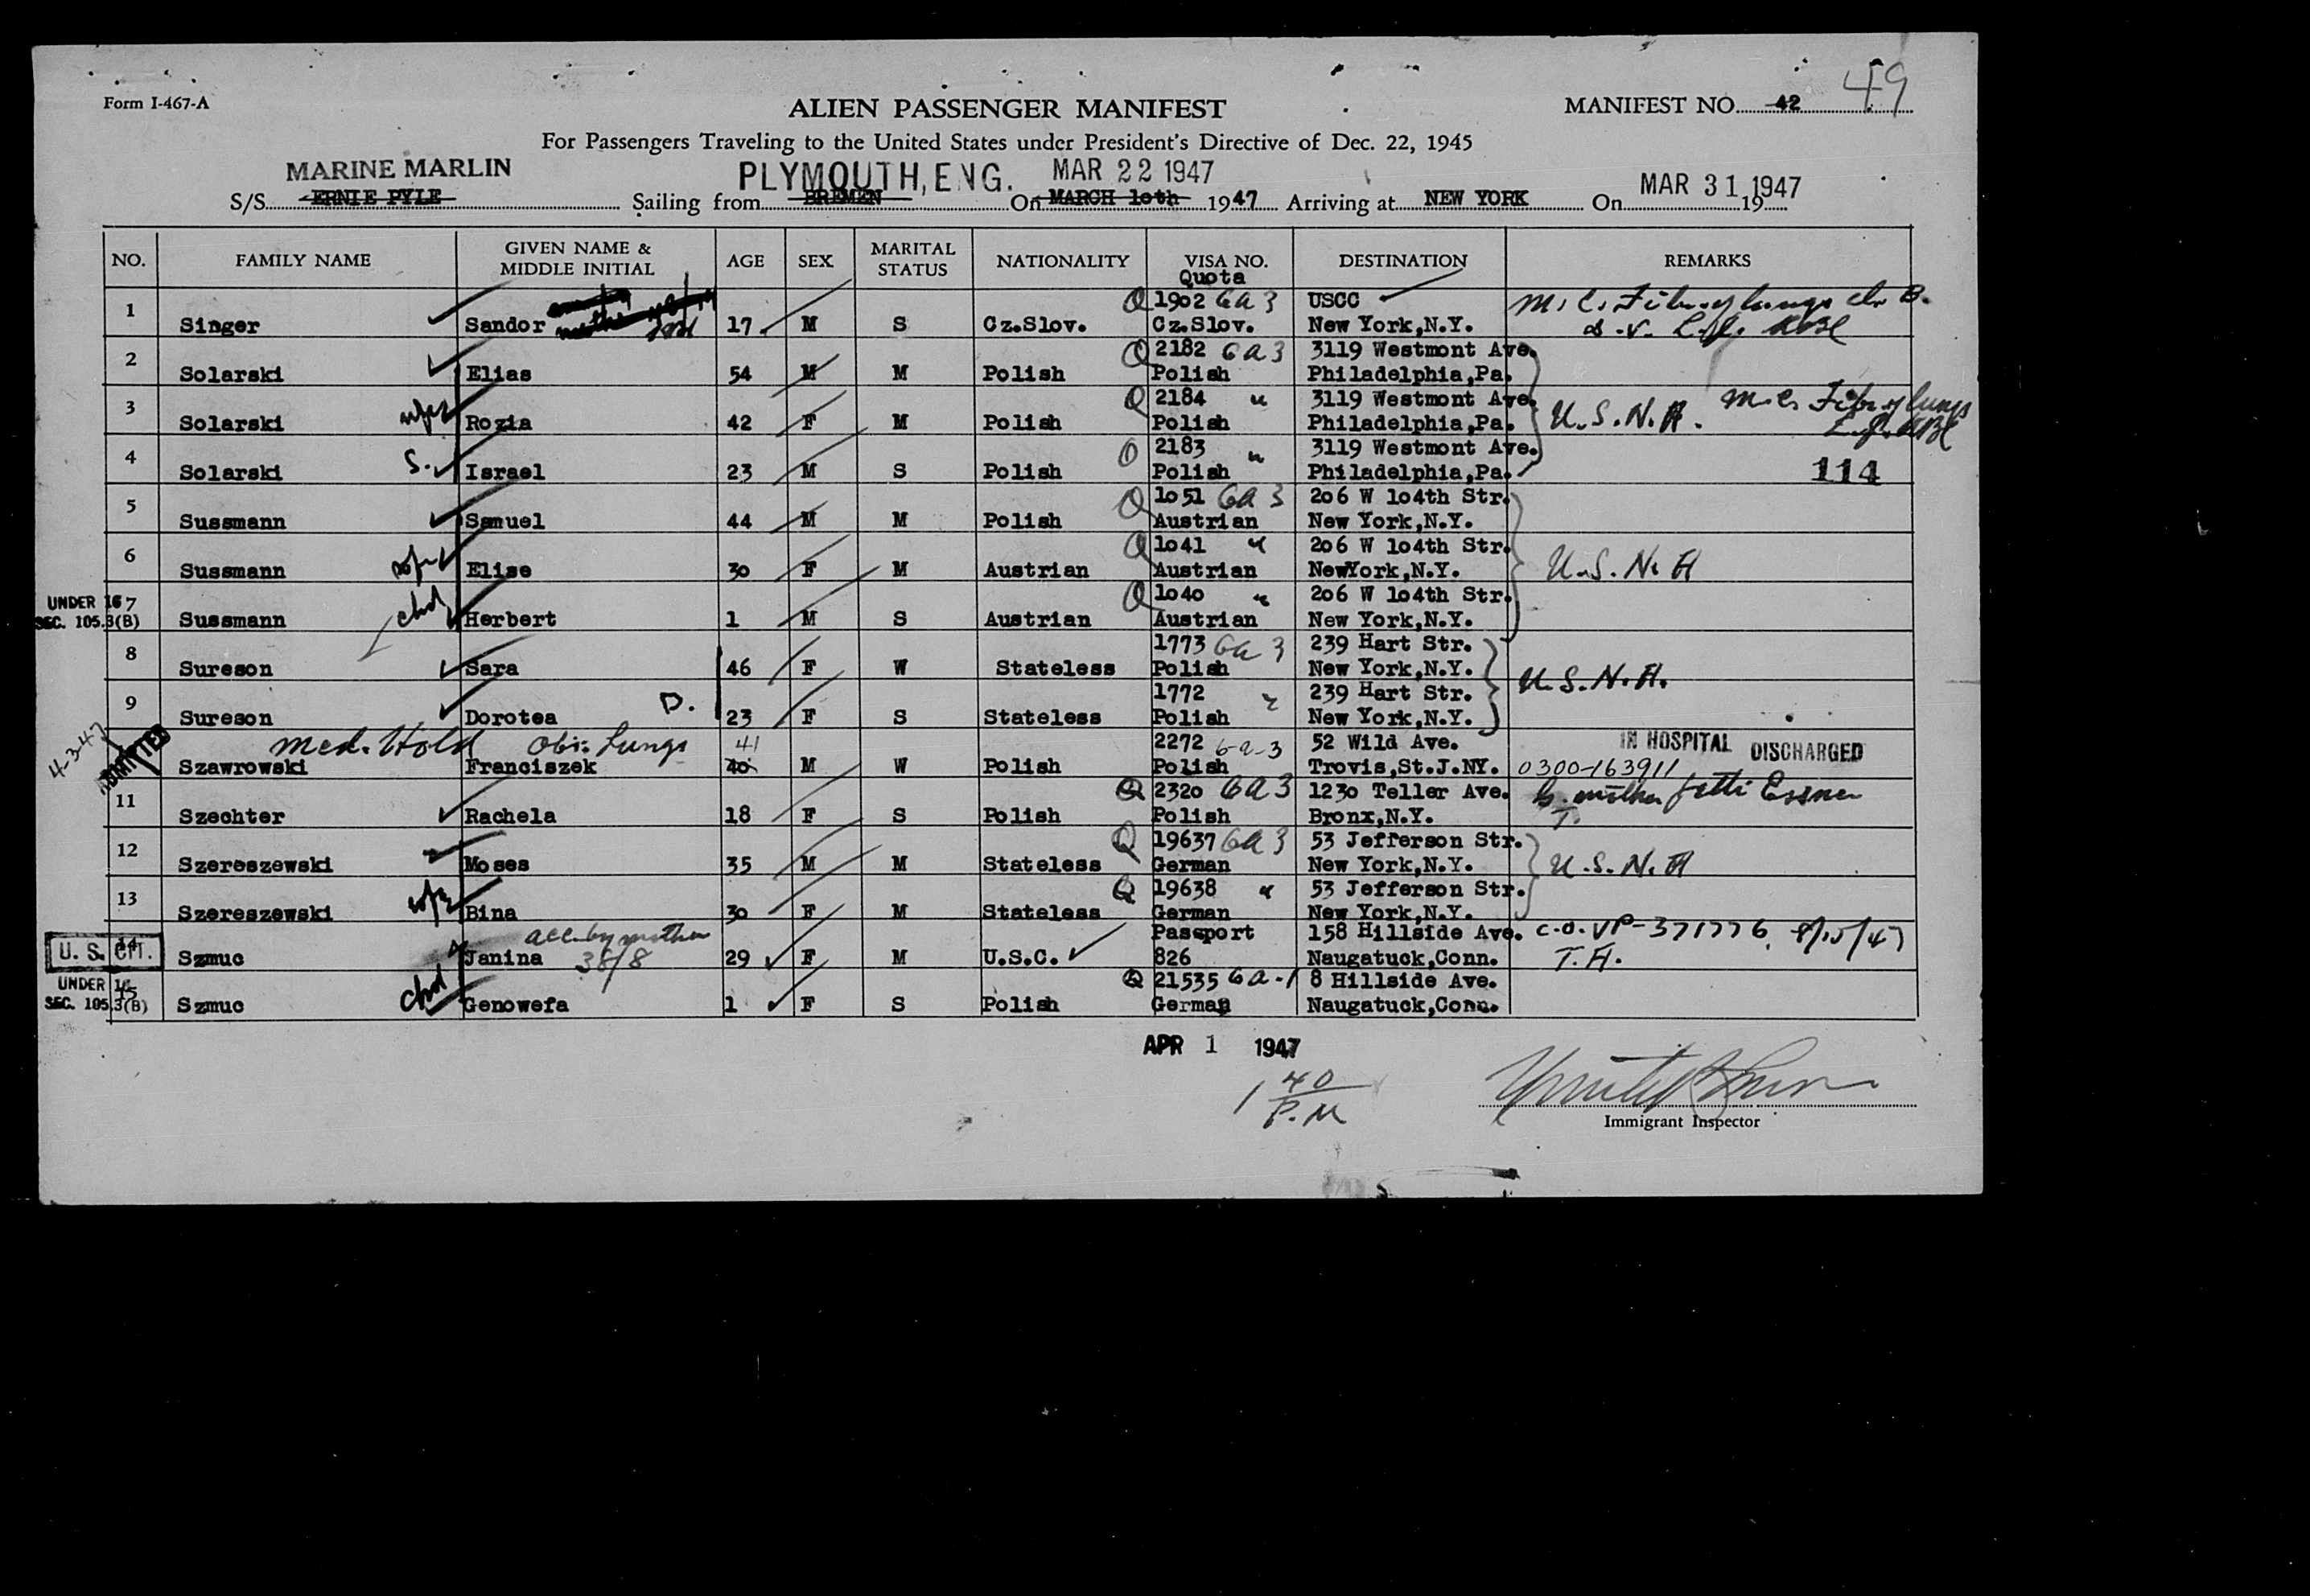 49
Form I-467-A
ALIEN PASSENGER MANIFEST
MANIFEST NO. 42
For Passengers Traveling to the United States under President's Directive of Dec. 22, 1945
MARINE MARLIN PLYMOUTH, ENG. MAR 22 1947 MAR 31 1947
S/S ERNIE PYLE Sailing from BREMEN On MARCH 10th 1947 Arriving at NEW YORK On 19
NO. FAMILY NAME GIVEN NAME & MIDDLE INITIAL AGE SEX MARITAL STATUS NATIONALITY VISA NO. DESTINATION REMARKS
Quota
1 Q 1902 6a3 USCC
Singer Sandor 17 M S Cz.Slov. Cz.Slov. New York,N.Y.
2 Q 2182 6a3 3119 Westmont Ave.
Solarski Elias 54 M M Polish Polish Philadelphia,Pa.
3 Q 2184 " 3119 Westmont Ave.
Solarski wfe Rozia 42 F M Polish Polish Philadelphia,Pa. U.S.N.H.
4 Q 2183 " 3119 Westmont Ave.
Solarski S. Israel 23 M S Polish Polish Philadelphia,Pa. 114
5 Q 1051 6a3 206 W 104th Str.
Sussmann Samuel 44 M M Polish Austrian New York,N.Y.
6 Q 1041 " 206 W 104th Str.
Sussmann wfe Elise 30 F M Austrian Austrian NewYork,N.Y. U.S.N.H
UNDER 16 7 Q 1040 " 206 W 104th Str.
SEC. 105.3(B) Sussmann chd Herbert 1 M S Austrian Austrian New York,N.Y.
8 1773 6a3 239 Hart Str.
Sureson Sara 46 F W Stateless Polish New York,N.Y. U.S.N.H.
9 1772 " 239 Hart Str.
Sureson Dorotea D. 23 F S Stateless Polish New York,N.Y.
4-3-47 ADMITTED Med. Hold Obs. Lungs 41 2272 6-a-3 52 Wild Ave. IN HOSPITAL DISCHARGED
Szawrowski Franciszek 40 M W Polish Polish Trovis,St.J.NY. 0300-163911
11 Q 2320 6a3 1230 Teller Ave.
Szechter Rachela 18 F S Polish Polish Bronx,N.Y.
12 Q 19637 6a3 53 Jefferson Str.
Szereszewski Moses 35 M M Stateless German New York,N.Y. U.S.N.H
13 Q 19638 " 53 Jefferson Str.
Szereszewski wfe Bina 30 F M Stateless German New York,N.Y.
14 acc. by mother Passport 158 Hillside Ave. C.O. VP-371776 8/15/47
U.S. CIT. Szmuc Janina 38/8 29 F M U.S.C. 826 Naugatuck,Conn. T.H.
UNDER 16 15 Q 21535 6a-1 8 Hillside Ave.
SEC. 105.3(B) Szmuc chd Genowefa 1 F S Polish German Naugatuck,Conn.
APR 1 1947
1 40
P.M
Immigrant Inspector